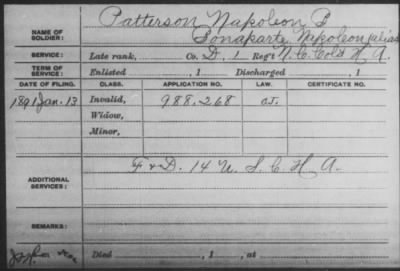 Patterson Napoleon B
NAME OF SOLDIER: Bonaparte, Napoleon alias
SERVICE: Late rank, Co. D, 1 Reg't N.C. Cold H A.
TERM OF SERVICE: Enlisted , 1 Discharged , 1
DATE OF FILING. CLASS. APPLICATION NO. LAW. CERTIFICATE NO.
1891 Jan. 13 Invalid, 988.268
Widow,
Minor,
ADDITIONAL SERVICES: F & D. 14 U. S. C. H A.
REMARKS:
Died , 1 , at